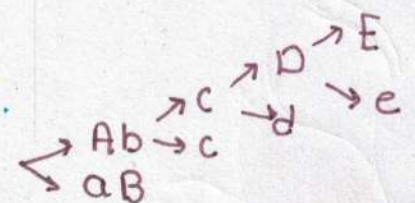 E
D
e
C
d
Ab
c
aB